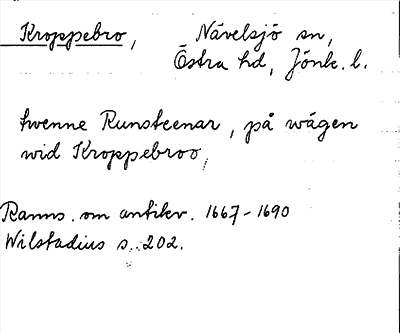 Kroppebro, Nävelsjö sn,
Östra hd, Jönk. l.
twenne Runsteenar, på wägen
wid Kroppebroo,
Ranns. om antikv. 1667-1690
Wilstadius s. 202.